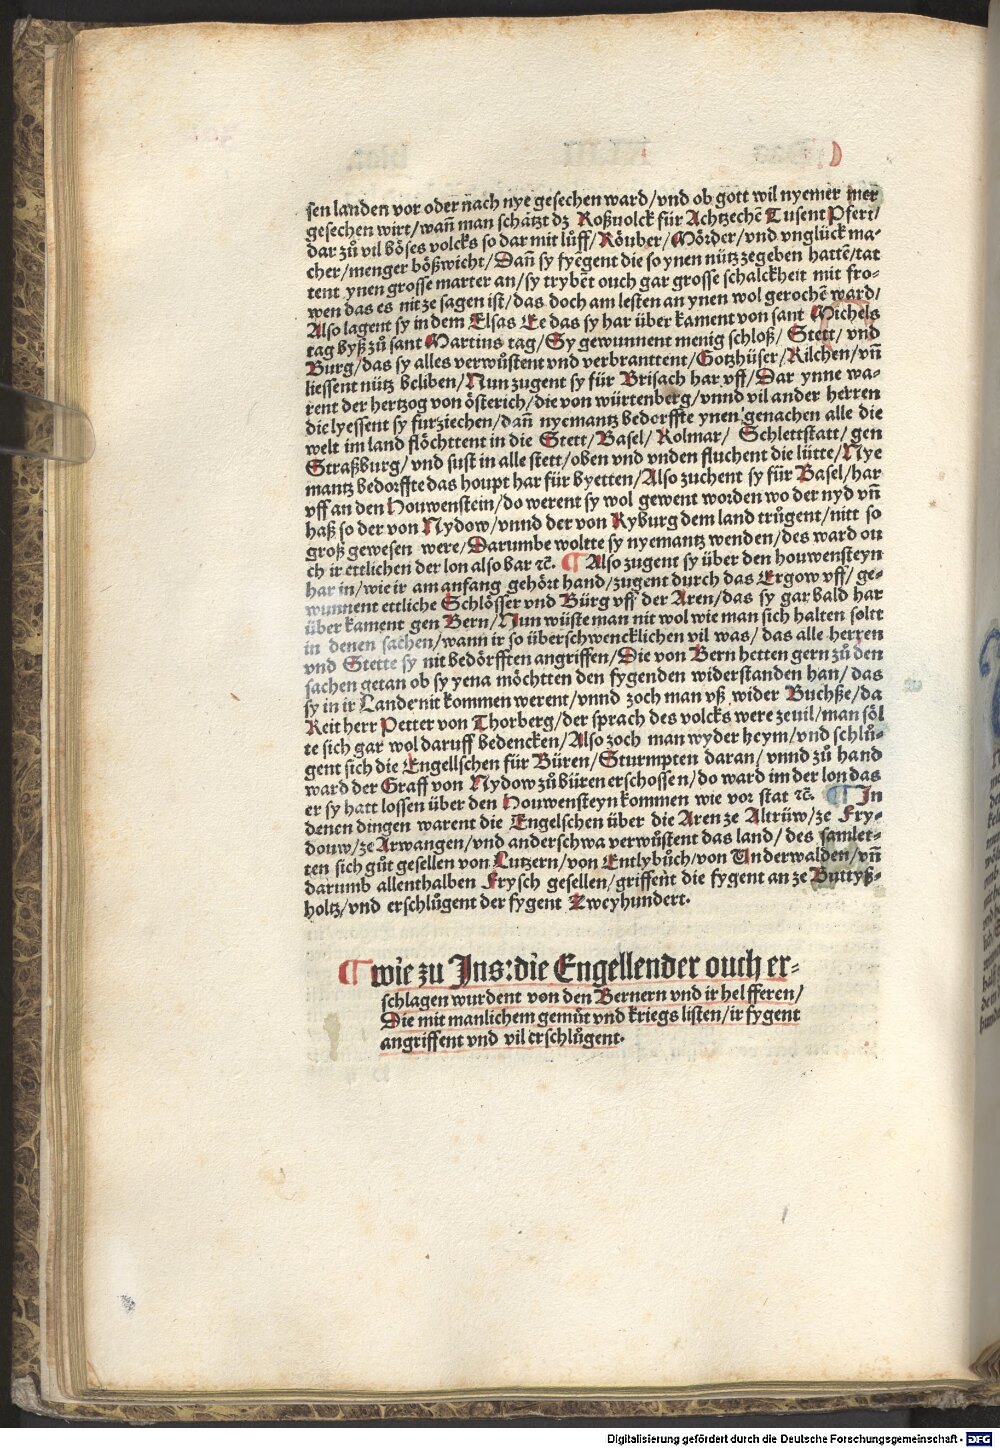 sen landen vor oder nach nye gesechen ward/vnd ob gott wil nyemer mer
gesechen wirt/wañ man schåtzt dz Roßuolck für Achtzechē Tusent Pfert/
dar zů vil böses volcks so dar mit lüff/Röuber/Mörder/vnd vnglück ma-
cher/menger bößwicht/Dañ sy fyēgent die so ynen nütz zegeben hattē/tat
tent ynen grosse marter an/sy trybēt ouch gar grosse schalckheit mit fro-
wen das es nit ze sagen ist/das doch am lesten an ynen wol gerochē ward/
Also lagent sy in dem Elsas Ee das sy har über kament von sant Michels
tag byß zů sant Martins tag/Sy gewunnent menig schloß/Stett/vnd
Burg/das sy alles verwůstent vnd verbranttent/Gotzhüser/Kilchen/vñ
liessent nütz beliben/Nun zugent sy für Brisach har vff/Dar ynne wa-
rent der hertzog von österich/die von würtenberg/vnnd vil ander herren
die lyessent sy fürziechen/dañ nyemantz bedorffte ynen genachen alle die
welt im land flöchttent in die Stett/Basel/Kolmar/ Schlettstatt/gen
Straßburg/vnd sust in alle stett/oben vnd vnden fluchent die lütte/Nye
mantz bedorffte das houpt har für byetten/Also zuchent sy für Basel/har
vff an den Houwenstein/do werent sy wol gewent worden wo der nyd vñ
haß so der von Nydow/vnnd der von Kyburg dem land trůgent/nitt so
groß gewesen were/Darumbe woltte sy nyemantz wenden/des ward ou
ch ir ettlichen der lon also bar ꝛc. ¶ Also zugent sy über den houwensteyn
har in/wie ir am anfang gehört hand/zugent durch das Ergow vff/ge-
wunnent ettliche Schlösser vnd Bürg vff der Aren/das sy gar bald har
über kament gen Bern/Nun wüste man nit wol wie man sich halten soltt
in denen sachen/wann ir so überschwencklichen vil was/das alle herren
vnd Stette sy nit bedörfften angriffen/Die von Bern hetten gern zů den
sachen getan ob sy yena möchtten den fygenden widerstanden han/das
sy in ir Lande nit kommen werent/vnnd zoch man vß wider Buchße/da
Reit herr Petter von Thorberg/der sprach des volcks were zeuil/man söl
te sich gar wol daruff bedencken/Also zoch man wyder heym/vnd schlů-
gent sich die Engellschen für Büren/Sturmpten daran/vnnd zů hand
ward der Graff von Nydow zů büren erschossen/do ward im der lon das
er sy hatt lossen über den Houwensteyn kommen wie vor stat ꝛc. ¶ In
denen dingen warent die Engelschen über die Aren ze Altrüw/ze Fry-
douw/ze Arwangen/vnd anderschwa verwůstent das land/des samlet-
ten sich gůt gesellen von Lutzern/von Entlybůch/von Underwalden/vñ
darumb allenthalben Frysch gesellen/griffent die fygent an ze Buttyß-
holtz/vnd erschlůgent der fygent Zweyhundert.
¶ wie zu Jns:die Engellender ouch er-
schlagen wurdent von den Bernern vnd ir helfferen/
Die mit manlichem gemůt vnd kriegs listen/ir fygent
angriffent vnd vil erschlůgent.
Digitalisierung gefördert durch die Deutsche Forschungsgemeinschaft - DFG